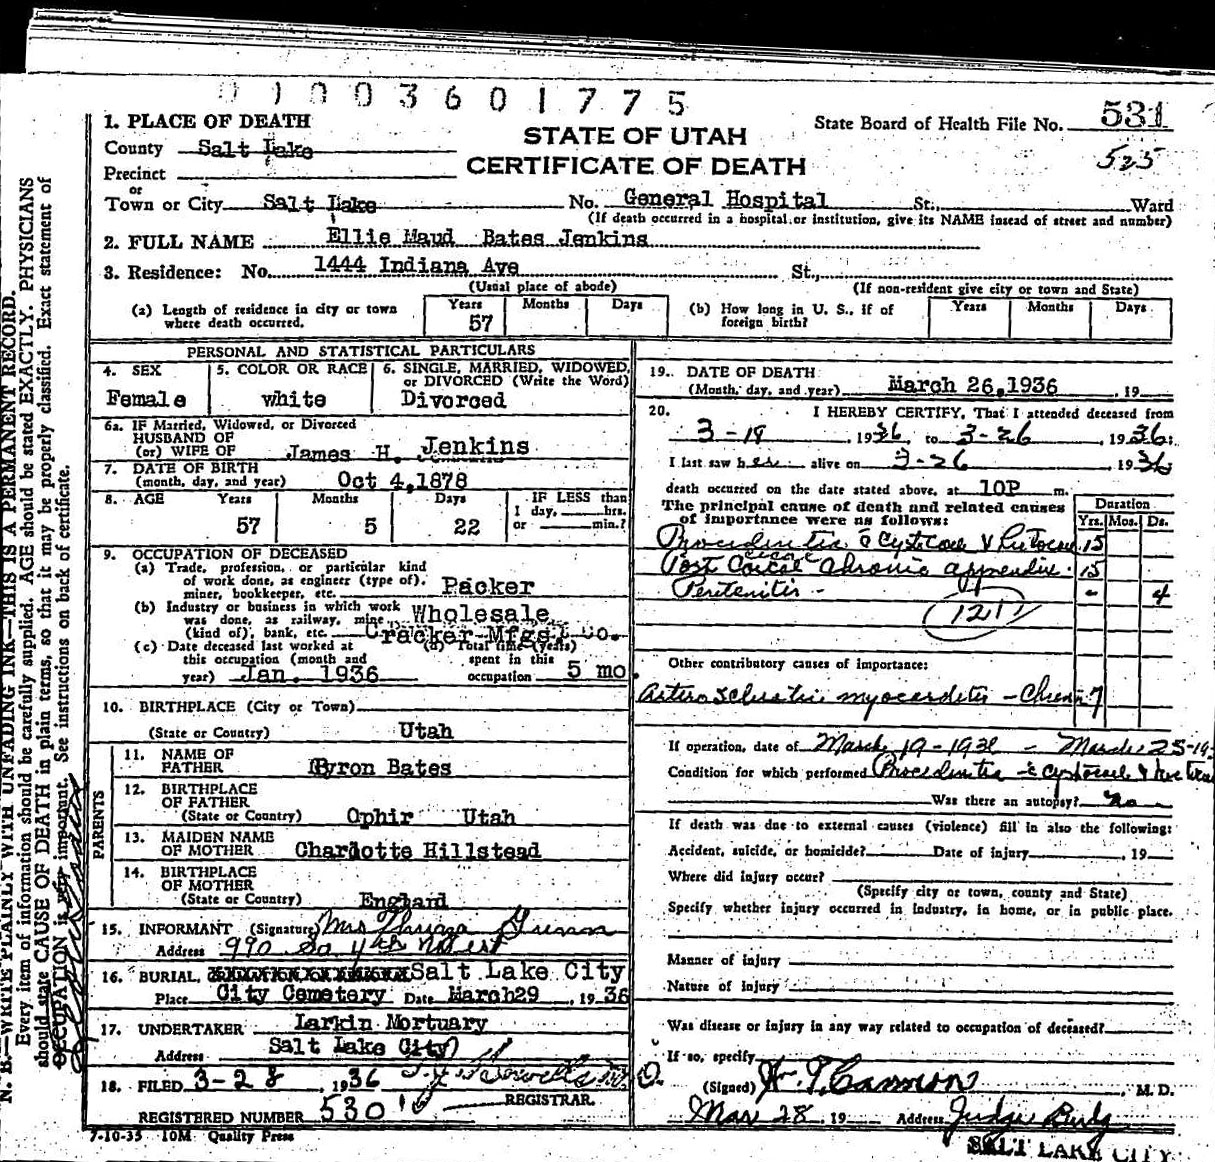 01003601775
1. PLACE OF DEATH
County Salt Lake
Precinct
or
Town or City Salt Lake No. General Hospital St. Ward
(If death occurred in a hospital or institution, give its NAME instead of street and number)
STATE OF UTAH
CERTIFICATE OF DEATH
State Board of Health File No. 531
525
2. FULL NAME Ellie Maud Bates Jenkins
3. Residence: No. 1444 Indiana Ave St.,
(Usual place of abode) (If non-resident give city or town and State)
(a) Length of residence in city or town where death occurred. Years 57 Months Days
(b) How long in U. S., if of foreign birth? Years Months Days
PERSONAL AND STATISTICAL PARTICULARS
4. SEX Female
5. COLOR OR RACE white
6. SINGLE, MARRIED, WIDOWED, or DIVORCED (Write the Word) Divorced
6a. IF Married, Widowed, or Divorced
HUSBAND OF
(or) WIFE OF James H. Jenkins
7. DATE OF BIRTH
(month, day, and year) Oct 4,1878
8. AGE Years 57 Months 5 Days 22 IF LESS than 1 day, hrs. or min.?
9. OCCUPATION OF DECEASED
(a) Trade, profession, or particular kind
of work done, as engineer (type of).
miner, bookkeeper, etc. Packer
(b) Industry or business in which work
was done, as railway, mine Wholesale
(kind of), bank, etc. Cracker Mfgs. Co.
(c) Date deceased last worked at
this occupation (month and
year) Jan. 1936
(d) Total time (years)
spent in this
occupation 5 mo.
10. BIRTHPLACE (City or Town)
(State or Country) Utah
PARENTS
11. NAME OF
FATHER Byron Bates
12. BIRTHPLACE
OF FATHER
(State or Country) Ophir Utah
13. MAIDEN NAME
OF MOTHER Charlotte Hillstead
14. BIRTHPLACE
OF MOTHER
(State or Country) England
15. INFORMANT (Signature) Mrs
Address 990 So 4th West
16. BURIAL, Salt Lake City
Place City Cemetery Date March29, 1936
17. UNDERTAKER Larkin Mortuary
Address Salt Lake City
18. FILED 3-28, 1936
REGISTRAR.
REGISTERED NUMBER 530
7-10-35 10M Quality Press
19. DATE OF DEATH
(Month, day, and year) March 26,1936, 19
20. I HEREBY CERTIFY, That I attended deceased from
3-19, 1936, to 3-26, 1936;
I last saw her alive on 3-26, 1936
death occurred on the date stated above, at 10P m.
The principal cause of death and related causes
of importance were as follows:
Duration
Yrs. Mos. Ds.
Procidentia c Cystocele & 15
Post chronic appendix 15
Peritonitis - - 4
121
Other contributory causes of importance:
myocarditis - Chronic 7
If operation, date of March 19-193 - March 25-19
Condition for which performed Procidentia c cystocele &
Was there an autopsy? no
If death was due to external causes (violence) fill in also the following:
Accident, suicide, or homicide? Date of injury, 19
Where did injury occur?
(Specify city or town, county and State)
Specify whether injury occurred in industry, in home, or in public place.
Manner of injury
Nature of injury
Was disease or injury in any way related to occupation of deceased?
If so, specify
(Signed) Cannon, M. D.
Mar 28 19 Address Judge Bldg
SALT LAKE CITY
N. B.—WRITE PLAINLY WITH UNFADING INK—THIS IS A PERMANENT RECORD.
Every item of information should be carefully supplied. AGE should be stated EXACTLY. PHYSICIANS
should state CAUSE OF DEATH in plain terms, so that it may be properly classified. Exact statement of
OCCUPATION is very important. See instructions on back of certificate.